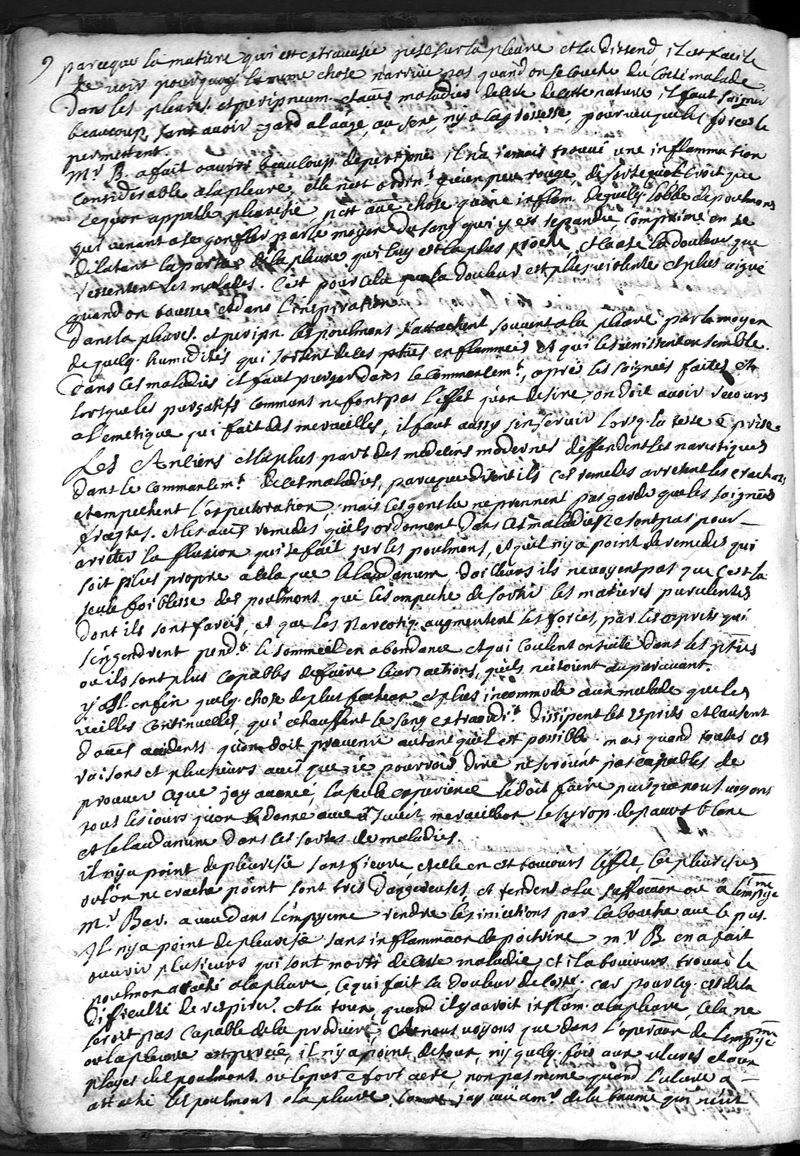 parceque la matiere qui est extravasée pese sur la pleure et la distend, il est facile
de voir pourquoy la meme chose n'arrive pas quand on se couche du costé malade
Dans les pleures. et peripneum. et autres maladies de cette nature, il faut saigner
beaucoup, sans avoir egard a l'aage, au sexe, ny a la grossesse, pourveu que les forces le
permettent.
Mr. B. a fait ouvrir beaucoup de personnes, il n'a jamais trouvé une inflammation
Considerable a la pleure, elle n'est ordin.t qu'un peu rouge, de sorte qu'il croit que
ce qu'on appelle pleuresie n'est autre chose qu'une inflam. de quelq. lobbe de poulmons
qui venant a se gonfler par le moyen du sang qui y est repandu, comprime en se
dilatant la partie de la pleure qui luy est la plus proche, et cause la douleur que
ressentent les malades. C'est pour cela que la douleur est plus violente et plus aigue
quand on tousse et dans l'inspiration.
Dans la pleures. et peripn. les poulmons s'attachent souvent a la pleure par le moyen
de quelq. humidités qui sortent de les pties enflammées et qui les unissent ensemble.
Dans ces maladies il faut purger dans le commencem.t, après les saignées faites et
lorsque les purgatifs communs ne font pas l'effet qu'on desire, on doit avoir recours
a l'emetique qui fait des merveilles, il faut aussy s'en servir lorsq. la teste est prise.
Les Anciens et la plus part des medecins modernes deffendent les narcotiques
dans le commencem.t de ces maladies, parceque disent ils ces remedes arrestent les crachats
et empechent l'expectoration, mais ces gens la ne prennent pas garde que les saignées
frequentes. et les autres remedes qu'ils ordonnent dans ces maladies ne sont pas pour
arreter la fluxion qui se fait sur les poulmons, et qu'il n'y a point de remedes qui
soit plus propre a cela que le laudanum. D'ailleurs ils ne voyent pas que c'est la
seule foiblesse des poulmons qui les empeche de sortir les matieres purulentes
dont ils sont farcis, et que les Narcotiq. augmentent les forces, par les esprits qui
s'engendrent pend.t le sommeil en abondance et qui coulent ensuite dans les pties
ou ils sont plus capables de faire leur actions, qu'ils n'etoient auparavant.
y a il enfin quelq. chose de plus facheux et plus incommode a un malade que les
veilles continuelles, qui echauffent le sang extraordi.t dissipent les esprits et causent
d'autres accidents qu'on doit prevenir autant qu'il est possible. mais quand toutes ces
raisons et plusieurs autres que je pourrois dire ne seroient pas capables de
prouver ce que j'ay avancé, la seule experience le doit faire puisque nous voyons
tous les jours qu'on donne avec un succès merveilleux le syrop de pavot blanc
et le laudanum dans ces sortes de maladies.
il n'y a point de pleuresie sans fievre, et elle en est toujours l'effet. les pleuresies
ou l'on ne crache point sont tres dangereuses, et tendent a la suffocation ou a l'empyeme
Mr. Bar. a veu dans l'empyeme rendre les iniections par la bouche avec le pus.
Il n'y a point de pleuresie sans inflammaon de poictrine. mr. B. en a fait
ouvrir plusieurs qui sont morts de cette maladie, et il a toujours trouvé le
poulmon attaché a la pleure, ce qui fait la douleur de costé. car pour ce qui est de la
difficulté de respirer. et la toux, quand il y auroit inflam. a la pleure, cela ne
seroit pas capable de la produire, et nous voyons que dans l'operaon de l'empyeme
ou la pleure est percée, il n'y a point de toux, ny quelq. fois aux ulceres et aux
playes des poulmons. ou le pus est fort acre, non pas meme quand l'ulcere a
attaché les poulmons a la pleure, comme j'ay veu a mr. de la baume qui n'eut